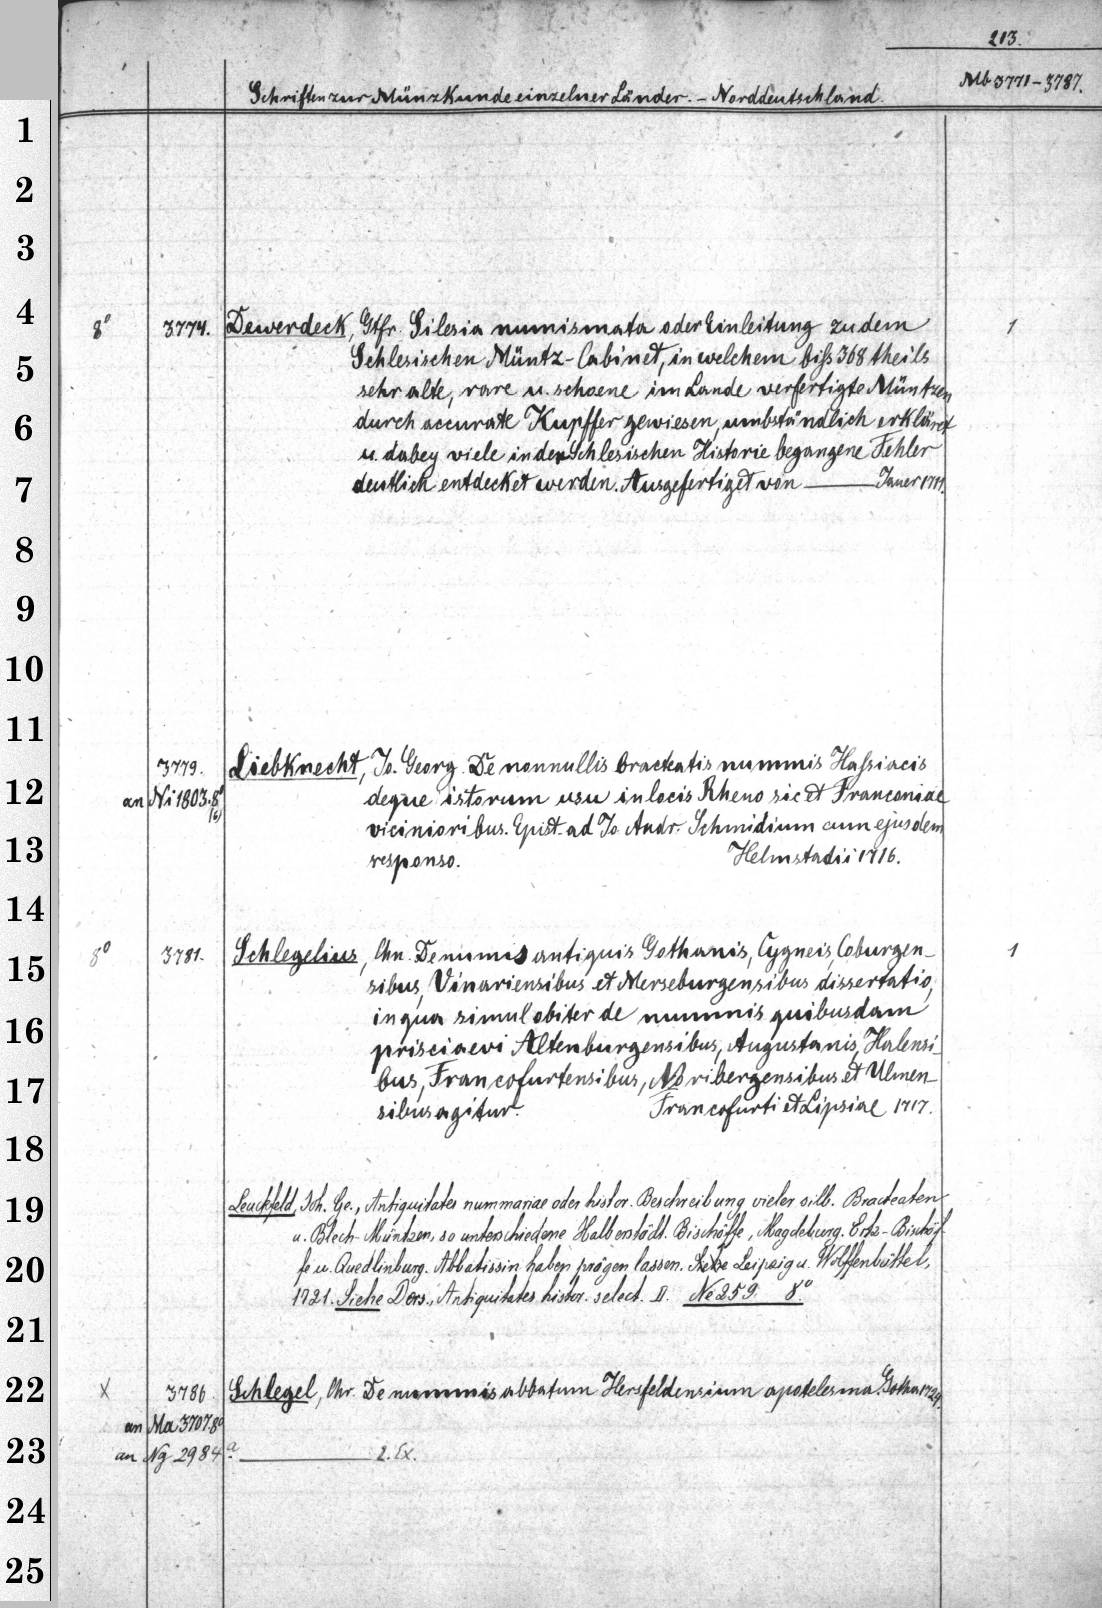 213.
Mb 3771-3787.
Schriften zur Münzkunde einzelner Länder. - Norddeutschland.
1
2
3
4
8° 3774. Dewerdeck, Gtfr. Silesia numismata oder Einleitung zu dem 1
Schlesischen Müntz-Cabinet, in welchem biß 368 theils
5
sehr alte, rare u. schoene im Lande verfertigte Müntzen
durch accurate Kupffer gewiesen, umbständlich erkläret
6
u. dabey viele in der Schlesischen Historie begangene Fehler
deutlich entdecket werden. Ausgefertiget von ——— Jauer 1711.
7
8
9
10
11
3779. Liebknecht, Jo. Georg. De nonnullis bracteatis nummis Haßiacis
12
an Ni 1803. 8° deque istorum usu in locis Rheno sic et Franconiae
(6)
vicinioribus. Epist. ad Jo. Andr. Schmidium cum ejusdem
13
responso. Helmstadii 1716.
14
8° 3781. Schlegelius, Chn. De numis antiquis Gothanis, Cygneis, Coburgen- 1
15
sibus, Vinariensibus et Merseburgensibus dissertatio,
in qua simul obiter de nummis quibusdam
16
prisci aevi Altenburgensibus, Augustanis, Halensi-
bus, Francofurtensibus, Noribergensibus et Ulmen-
17
sibus agitur. Francofurti et Lipsiae 1717.
18
19
Leuckfeld, Joh. Ge., Antiquitates nummariae oder histor. Beschreibung vieler silb. Bracteaten
u. Blech-Müntzen, so unterschiedene Halberstädt. Bischöffe, Magdeburg. Ertz-Bischöf-
20
fe u. Quedlinburg. Abbatissin haben prägen lassen. Leipzig u. Wolffenbüttel,
1721. Siehe Dess., Antiquitates histor. select. II. Ne 259. 8°
21
22
X 3786. Schlegel, Chr. De nummis abbatum Hersfeldensium apotelesma. Gotha 1724.
an Ma 3707. 8°
23
an Ng 2984 a. ——— 2. Ex.
24
25